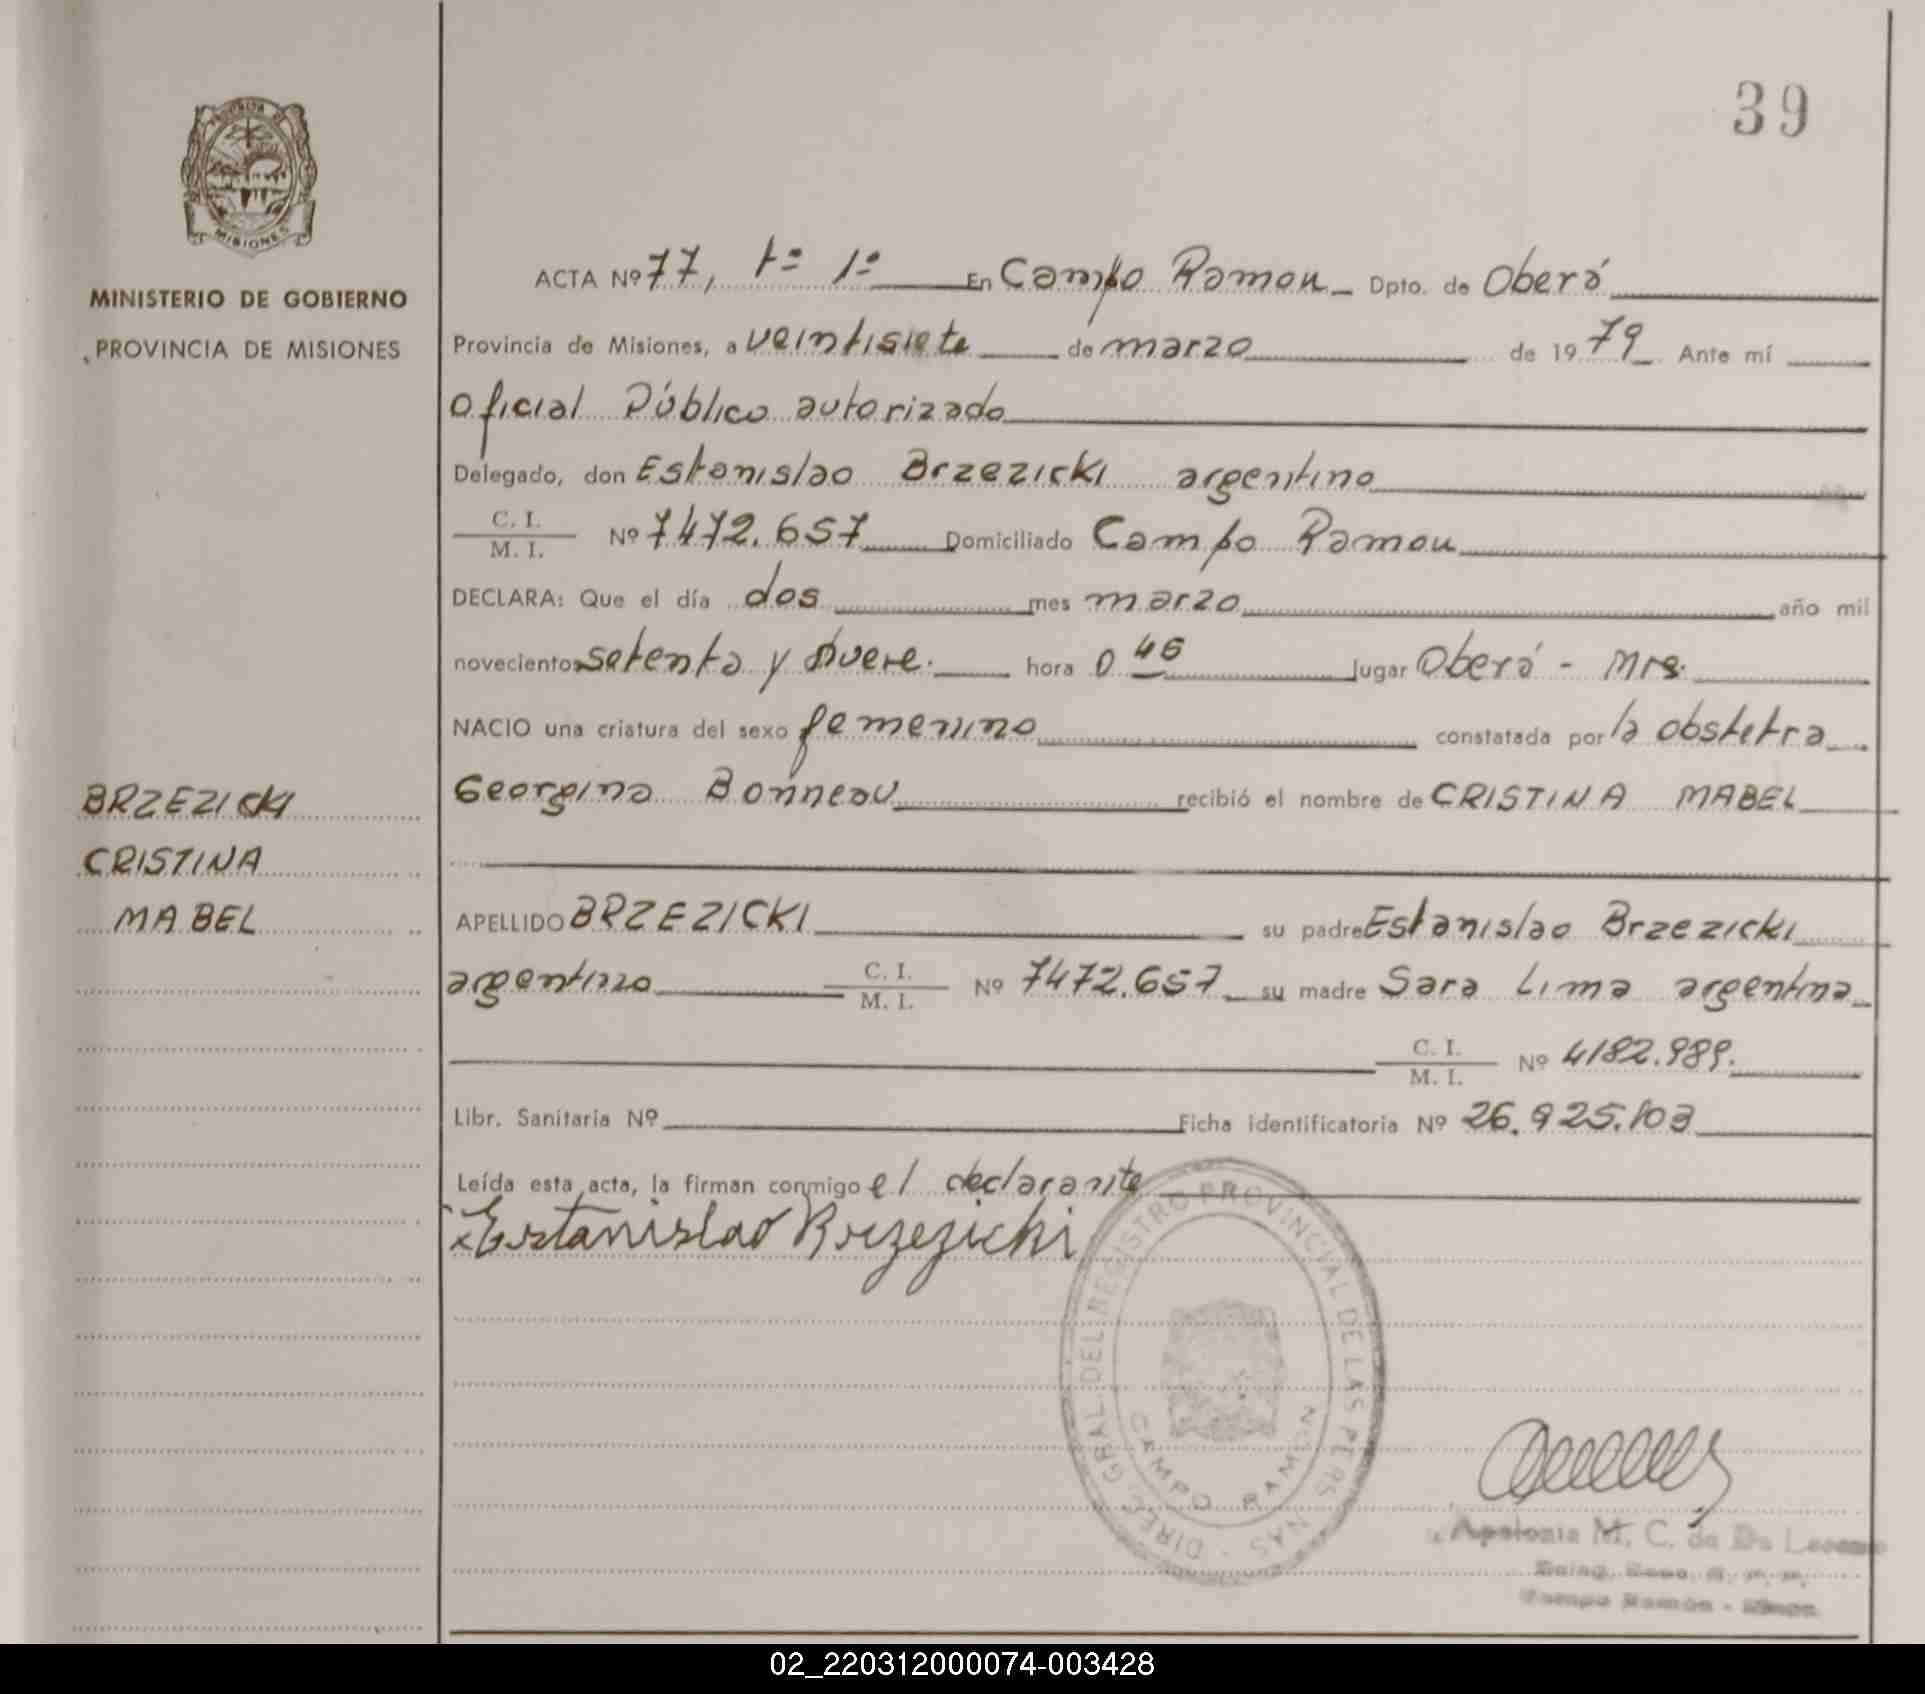 39
MINISTERIO DE GOBIERNO
PROVINCIA DE MISIONES
MISIONES
BRZEZICKI
CRISTINA
MABEL
ACTA Nº 77, Tº 1º En Campo Ramon Dpto. de Oberá
Provincia de Misiones, a veintisiete de marzo de 1979 Ante mí
Oficial Público autorizado
Delegado, don Estanislao Brzezicki argentino
C. I.
M. I. Nº 7472.657 Domiciliado Campo Ramon
DECLARA: Que el día dos mes marzo año mil
novecientos setenta y nueve. hora 0 45 lugar Oberá - Mns.
NACIO una criatura del sexo femenino constatada por la obstetra
Georgina Bonneau recibió el nombre de CRISTINA MABEL
APELLIDO BRZEZICKI su padre Estanislao Brzezicki
argentino C. I. M. I. Nº 7472.657 su madre Sara Lima argentina
C. I.
M. I. Nº 4182.989.
Libr. Sanitaria Nº Ficha identificatoria Nº 26.925.103
Leída esta acta, la firman conmigo el declarante
Estanislao Brzezicki
DIREC. GRAL. DEL REGISTRO PROVINCIAL DE LAS PERSONAS
CAMPO RAMON
Apolonia M. C. de Da
Campo Ramón
02_220312000074-003428